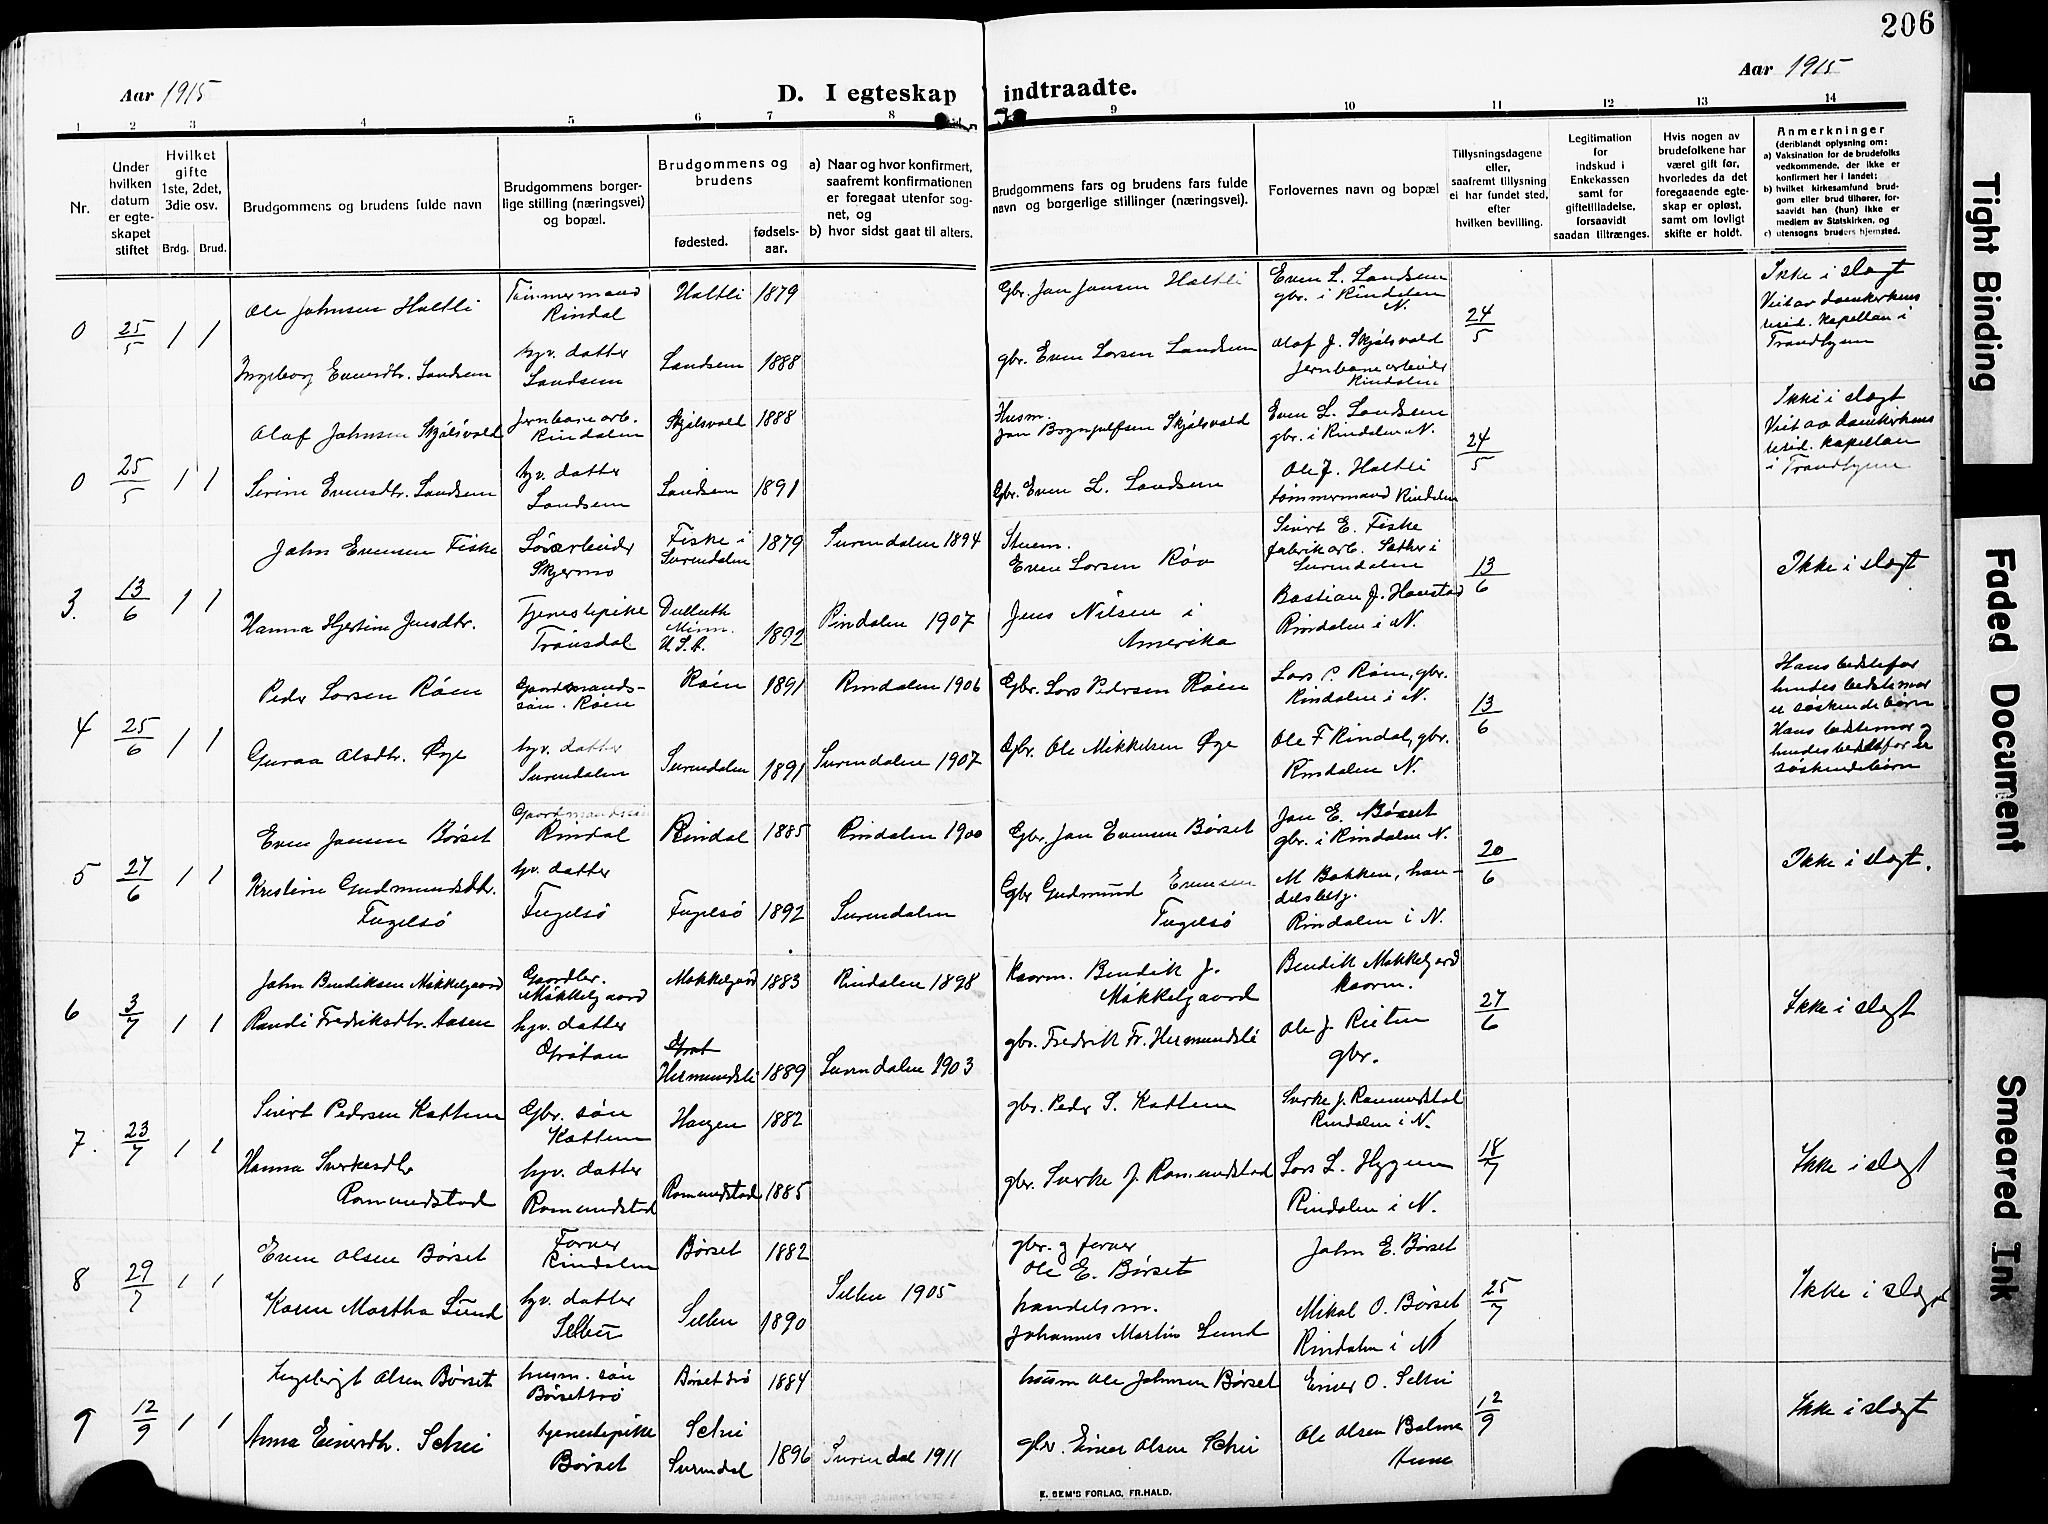 206
Aar 1915
D. I egteskap indtraadte.
Aar 1915
1 2 3 4 5 6 7 8 9 10 11 12 13 14
Nr.
Under hvilken datum er egteskapet stiftet
Hvilket gifte 1ste, 2det, 3die osv.
Brdg. Brud.
Brudgommens og brudens fulde navn
Brudgommens borgerlige stilling (næringsvei) og bopæl.
Brudgommens og brudens
fødested.
fødselsaar.
a) Naar og hvor konfirmert, saafremt konfirmationen er foregaat utenfor sognet, og
b) hvor sidst gaat til alters.
Brudgommens fars og brudens fars fulde navn og borgerlige stillinger (næringsvei).
Forlovernes navn og bopæl
Tillysningsdagene eller, saafremt tillysning ei har fundet sted, efter hvilken bevilling.
Legitimation for indskud i Enkekassen samt for giftetilladelse, forsaavidt saadan tiltrænges.
Hvis nogen av brudefolkene har været gift før, hvorledes da det foregaaende egteskap er opløst, samt om lovligt skifte er holdt.
Anmerkninger
(deriblandt oplysning om:
a) Vaksination for de brudefolks vedkommende, der ikke er konfirmert her i landet;
b) hvilket kirkesamfund brudgom eller brud tilhører, forsaavidt han (hun) ikke er medlem av Statskirken, og
c) utensogns bruders hjemsted.
0 25/5 1 1
Ole Johnsen Holtli
Tømmermand Rindal
Holtli 1879
Gbr. Jon Jonsen Holtli
Even L. Landsem
gbr. i Rindalen N.
24/5
Ikke i slegt
Viet av domkirkens
resid. kapellan i
Trondhjem
Ingeborg Evensdtr. Landsem
hjv. datter Landsem
Landsem 1888
gbr. Even Larsen Landsem
Olaf J. Skjølsvold
Jernbanearbeider
Rindalen
0 25/5 1 1
Olaf Johnsen Skjølsvold
Jernbanearb. Rindalen
Skjølsvold 1888
Husm.
Jon Brynjulfsen Skjølsvold
Even L. Landsem
gbr. i Rindalen N.
24/5
Ikke i slegt
Viet av domkirkens
resid. kapellan
i Trondhjem
Serine Evensdtr. Landsem
hjv. datter Landsem
Landsem 1891
Gbr. Even L. Landsem
Ole J. Holtli
tømmermand Rindalen
3. 13/6 1 1
John Evensen Fiske
Skjermo
Fiske i Surendalen 1879
Surendalen 1894
Even Larsen Røv
Sivert E. Fiske
fabrikarb. Sæther i
Surendalen
13/6
Ikke i slegt
Hanna Hjertine Jensdtr.
Tjenestepike
Dulluth Minn. U.S.A. 1892
Rindalen 1907
Jens Nilsen i
Amerika
Bastian J. Haustad
Rindalen i N.
4 25/6 1 1
Peder Larsen Røen
Gaardmandssøn. Røen
Røen 1891
Rindalen 1906
Gbr. Lars Pedersen Røen
Lars P. Røen, gbr.
Rindalen i N.
13/6
Hans bedstefar
hendes bedstemor
er søskendebørn
Hans bedstemor og
hendes bedstefar er
søskendebørn
Guraa Olsdtr. Øye
hjv. datter Surendalen
Surendalen 1891
Surendalen 1907
Gbr. Ole Mikkelsen Øye
Ole F Rindal, gbr.
Rindalen N.
5 27/6 1 1
Even Jonsen Børset
Gaardmandssøn Rindal
Rindal 1885
Rindalen 1900
Gbr. Jon Evensen Børset
Jon E. Børset
gbr. i Rindalen N.
20/6
Ikke i slegt.
Kristine Gudmundsdtr.
Fugelsø
hjv. datter Fugelsø
Fugelsø 1892
Surendalen
Gbr Gudmund Evensen
Fugelsø
M Bakken, handelsbetj.
Rindalen i N.
6 3/7 1 1
John Bendiksen Møkkelgaard
Gaardbr. Møkkelgaard
Møkkelgaard 1883
Rindalen 1898
Kaarm. Bendik J.
Møkkelgaard
Bendik Møkkelgaard
kaarm.
27/6
Ikke i slegt
Randi Fredriksdtr. Aasen
hjv. datter
Hermundsli 1889
Surendalen 1903
gbr. Fredrik Fr. Hermundsli
Ole J. Risten
gbr.
7. 23/7 1 1
Sivert Pedersen Kattem
Gbr. søn Kattem
Haugen 1882
gbr. Peder S. Kattem
Sverke J. Romundstad
Rindalen i N.
18/7
Ikke i slegt
Hanna Sverkesdtr
Romundstad
hjv. datter Romundstad
Romundstad 1885
gbr. Sverke J. Romundstad
Lars L. Hyggen
Rindalen i N.
8 29/7 1 1
Even Olsen Børset
Farver Rindalen
Børset 1882
gbr. og farver
Ole E. Børset
John E. Børset
25/7
Ikke i slegt
Karen Martha Lund
hjv. datter Selbu
Selbu 1890
Selbu 1905
handelsm.
Johannes Martin Lund
Mikal O. Børset
Rindalen i N
9 12/9 1 1
Ingebrigt Olsen Børset
husm. søn Børsettrø
Børsettrø 1884
husm Ole Johnsen Børset
Einer O. Schei
12/9
Ikke i slegt
Anna Einersdtr. Schei
tjenestepike Børset
Schei Surendal 1896
Surendal 1911
gbr. Einer Olsen Schei
Ole Olsen Bolme
E. SEM'S FORLAG, FR.HALD.
Tight Binding
Faded Document
Smeared Ink